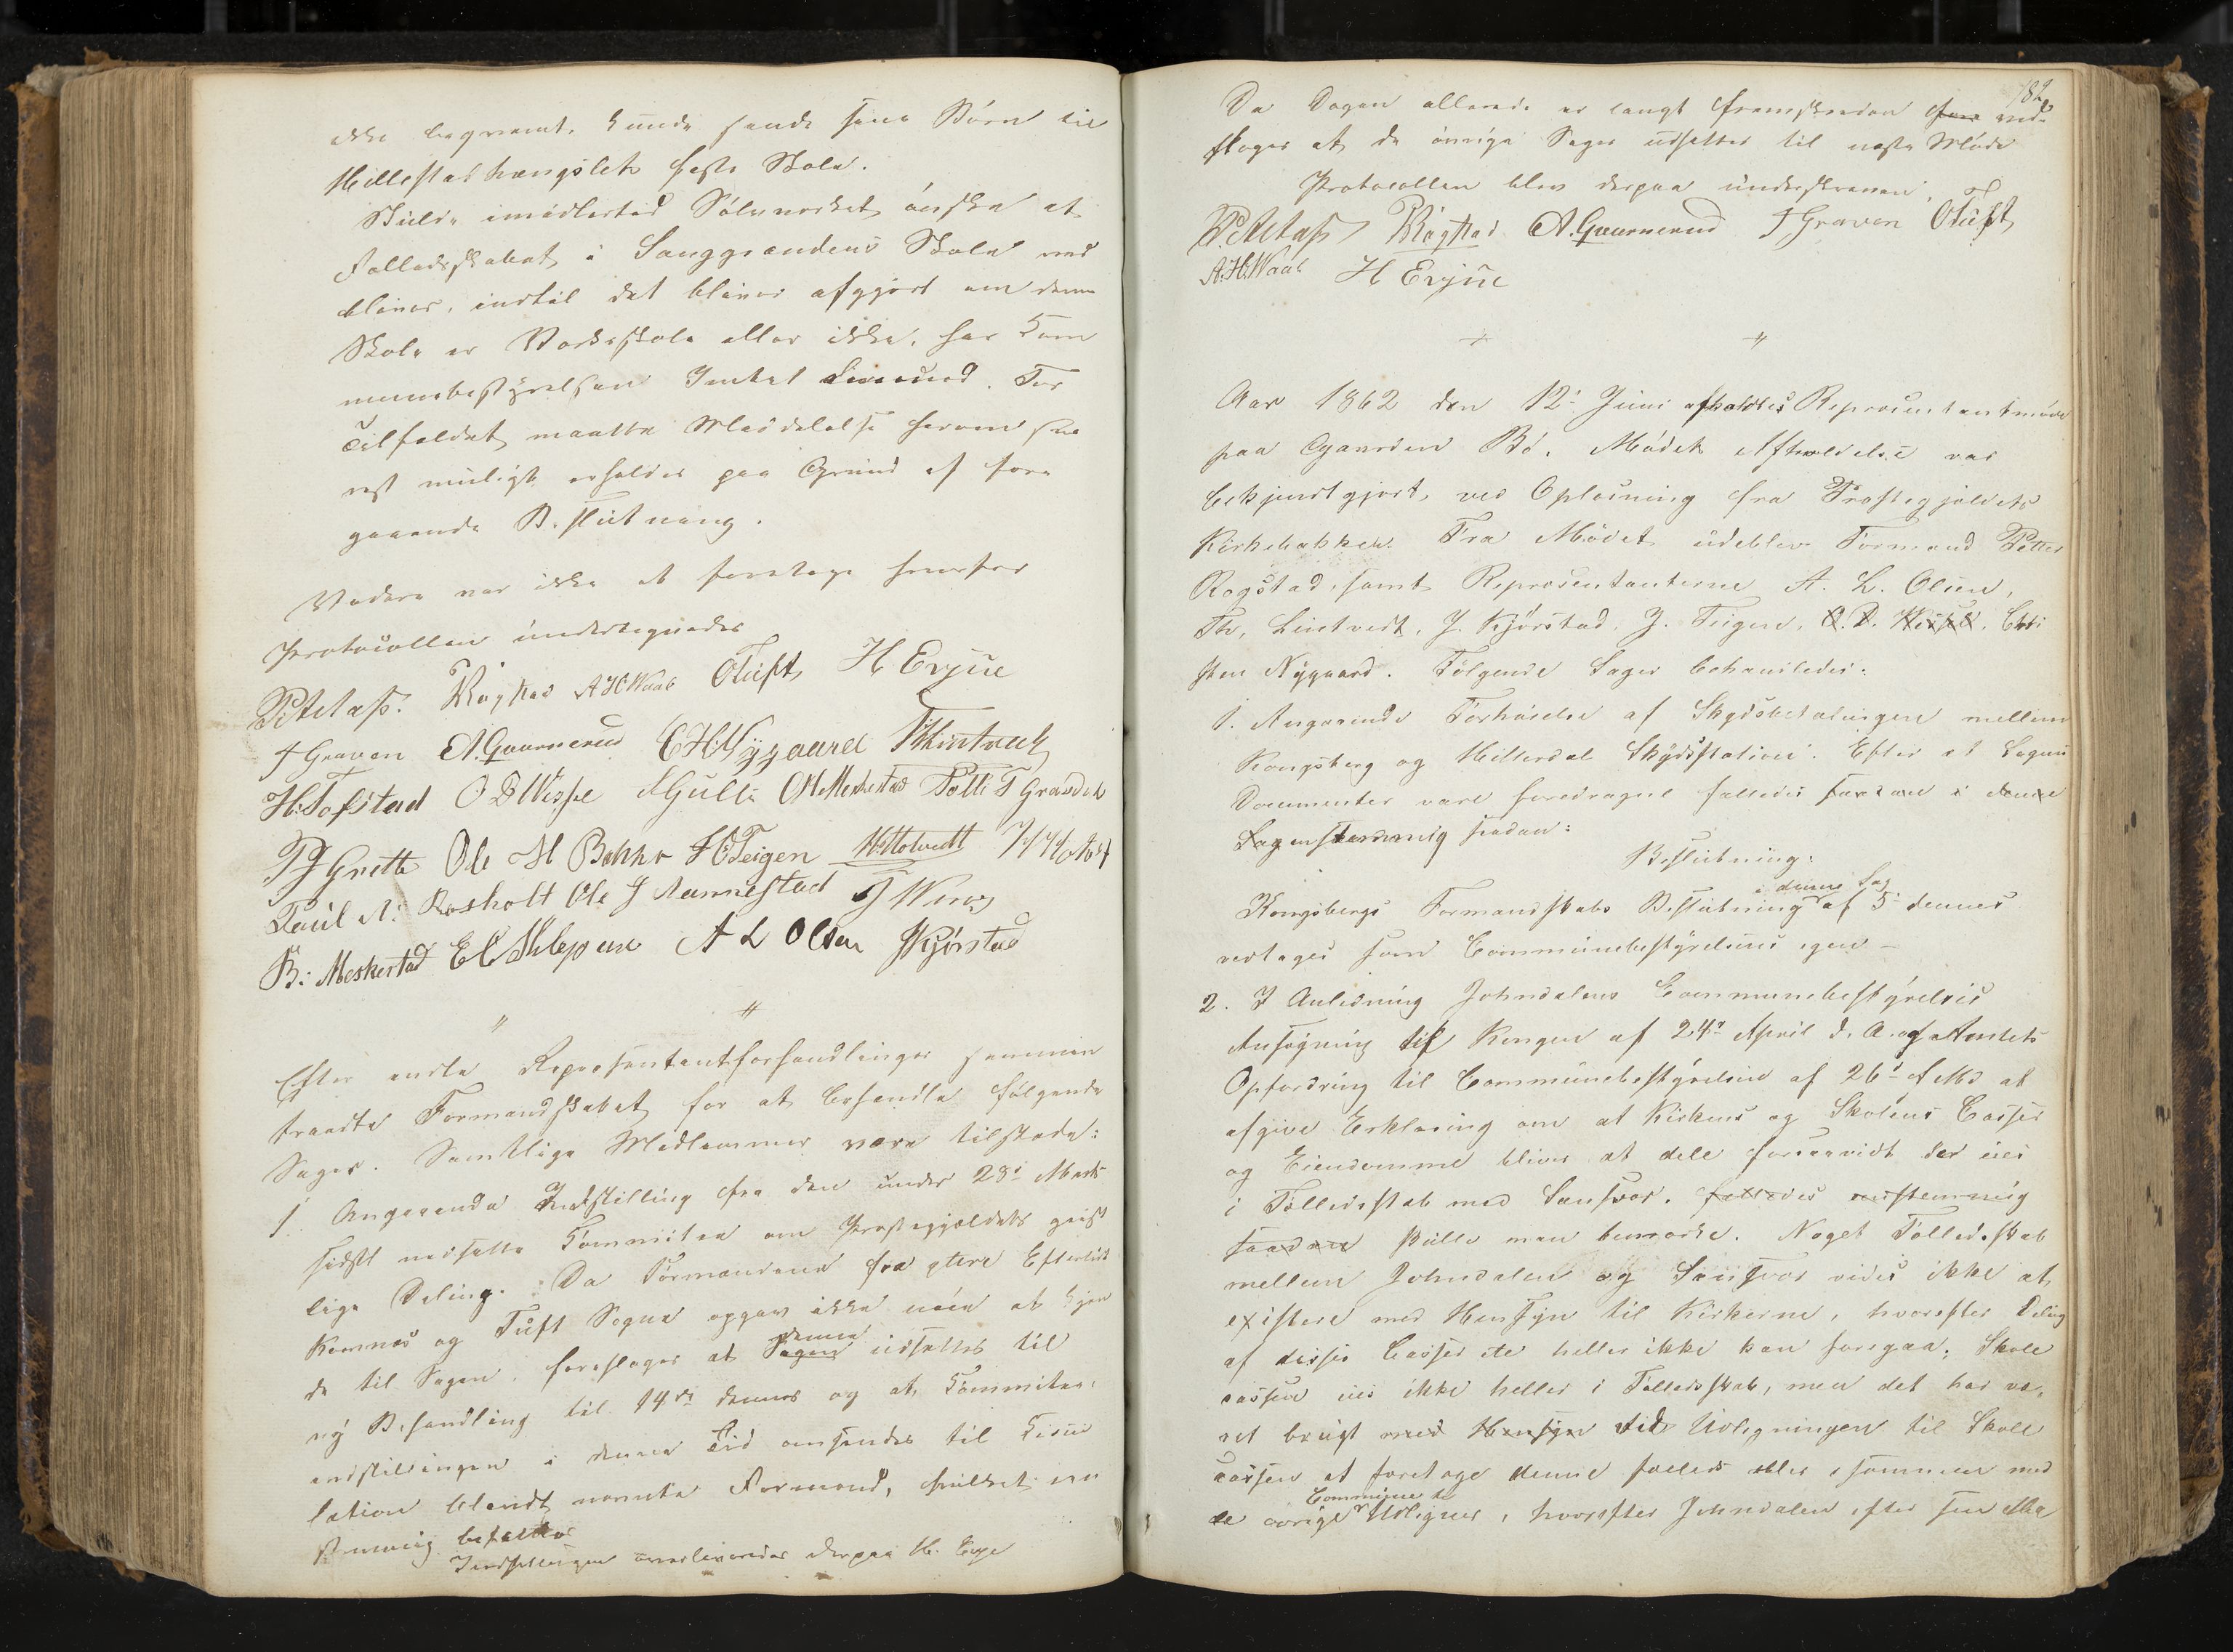 ikke beqvemt kunde sende sine Börn til
Hillestadhængslets faste Skole.
Skulde imidlertid Sölvverket önske at
Fælledsskabet i Langgrandens Skole ved
bliver, indtil det bliver afgjort om denne
Skole er Værksskole eller ikke, har Com
munebestyrelsen Intet derimod. For
Tilfældet maatte Meddelelse herom sna
rest muligt erholdes paa Grund af fore
gaaende Beslutning.
Videre var ikke at foretage hvorfor
Protocollen undertegnedes
P. Stelass. Rögstad A H Waab OTuft H Evjue
T Graven A. Gaarnerud C H Nygaard T Lintvedt
H: Tofstad O D Wisse Gulli O M Meskestad Potte T Grandek
T J Grette Ole H Bekke H O Teigen H Holtvedt
Paul A: Rosholt Ole J Aannestad J Waas
B: Meskestad E C Sklepene A L Olsen J Kjörstad
〃 〃
Efter endte Repræsentantforhandlinger sammen
traadte Formandskabet for at behandle fölgende
Sager. Samtlige Medlemmer vare tilstede:
1. Angaaende Indstilling fra den under 28de Marts
sidst nedsatte Committee om Præstegjeldets geist
lige Deling. Da Formændene fra ytre Efterlöit
Komnes og Tuft Sogne opgav ikke nöie at kjen
de til Sagen, foreslages at Sagen denne udsættes til
ny Behandling til 14de dennes og at Committee
indstillingen i denne Tid omsendes til Circu
lation blandt nævnte Formænd, hvilket een
stemmig besluttes
Indstillingen overleveredes derpaa H. Evju
182
Da Dagen allerede er langt fremskreden ved
tages at de övrige Sager udsættes til næste Möde
Protocollen blev derpaa underskreven
P. Stelass Rögstad A. Gaarnerud T Graven OTuft
A. H. Waab H Evjue
〃 〃
Aar 1862 den 12te Juni afholdtes Repræsentantmöde
paa Gaarden Bö. Mödets Afholdelse var
bekjendtgjort ved Oplæsning fra Præstegjeldets
Kirkebakker. Fra Mödet udeblev Formand Petter
Rogstad, samt Repræsentanterne A. L. Olsen,
Th. Lintvedt, J. Kjörstad, J. Teigen, O. D. Wisse, Chri
sten Nygaard. Fölgende Sager behandledes:
1. Angaaende Forhöielse af Skydsbetalingen mellem
Kongsberg og Hitterdal Skydsstation. Efter at Sagens
Documenter vare foredragne fattedes saadan i denne
Sag enstemmig saadan:
Beslutning:
Kongsbergs Formandskabs Beslutning i denne Sag af 5te dennes
vedtages som Communebestyrelsens egen —
2. I Anledning Johndalens Communebestyrelses
Ansögning til Kongen af 24de April d. A. og Amtets
Opfordring til Communebestyrelsen af 26de f. Md at
afgive Erklæring om at Kirkens og Skolens Casser
og Eiendomme bliver at dele forsaavidt der eies
i Fælledsskab med Sandsvær. fattedes enstemmig
saadan skulle man bemærke. Noget Fælledsskab
mellem Johndalen og Sandsvær vides ikke at
existere med Hensyn til Kirkerne, hvorefter Deling
af disses Casser ei heller ikke kan foregaa; Skole
cassen eies ikke heller i Fælledsskab, men det har væ
ret brugt med Hensyn ved Udligningen til Skole
cassen at foretage denne fælleds eller sammen med
de övrige Commune Udligner, hvorefter Johndalen efter sin Ma